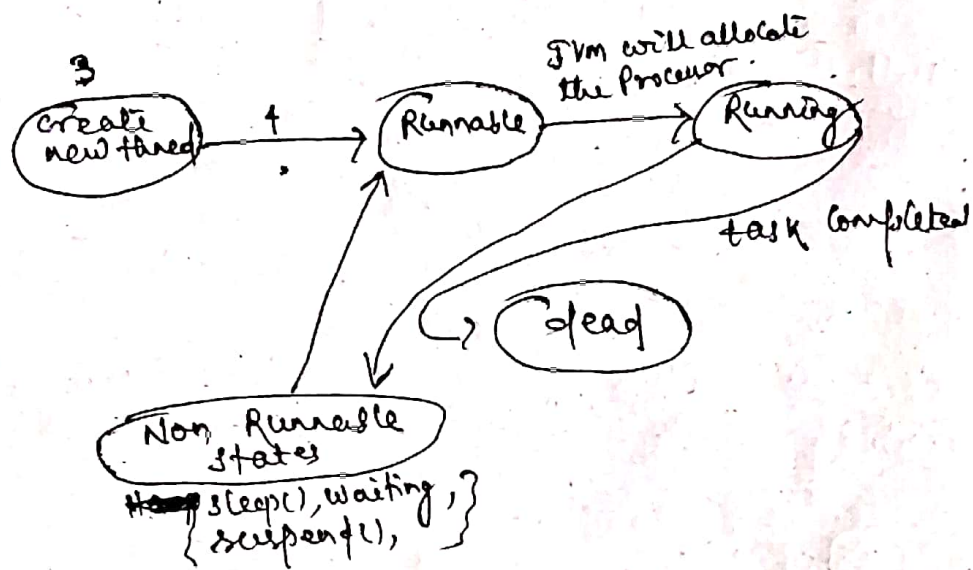 3
create
new thred
4
Runnable
JVM will allocate
the Processor.
Running
task Completed
dead
Non Runnable
states
sleep(), waiting,
suspend(),